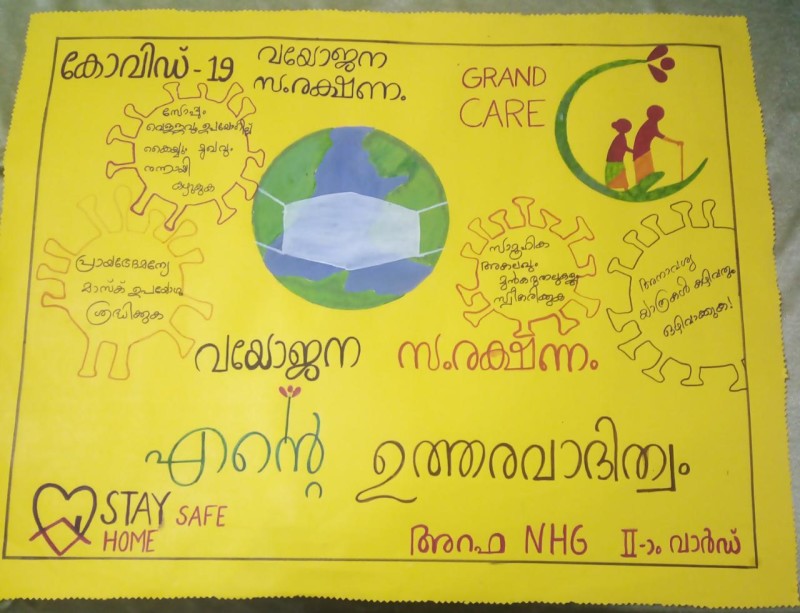 കോവിഡ് - 19
വയോജന
സംരക്ഷണം.
GRAND
CARE
സോപ്പും
വെള്ളവും ഉപയോഗിച്ച്
കൈയ്യും മുഖവും
നന്നായി
കഴുകുക
പ്രായഭേദമന്യേ
മാസ്ക് ഉപയോഗ
ശ്രദ്ധിക്കുക
സാമൂഹിക
അകലവും
മുൻകരുതലുകളും
സ്വീകരിക്കുക
അനാവശ്യ
യാത്രകൾ കഴിവതും
ഒഴിവാക്കുക!
വയോജന സംരക്ഷണം
എന്റെ ഉത്തരവാദിത്വം
STAY SAFE
HOME
അറഫ NHG II-ാം വാർഡ്